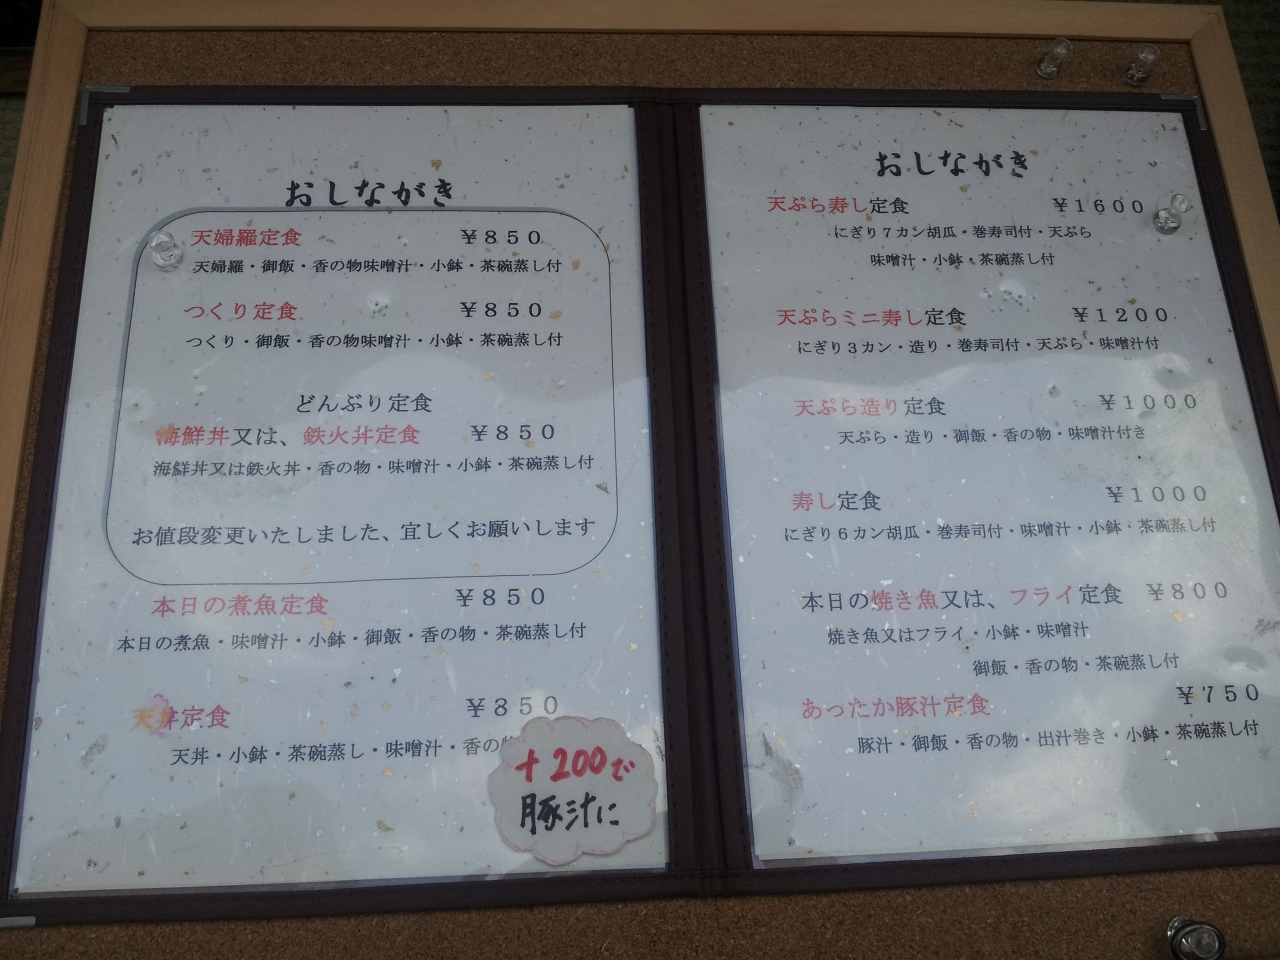 おしながき
天婦羅定食 ￥８５０
天婦羅・御飯・香の物味噌汁・小鉢・茶碗蒸し付
つくり定食 ￥８５０
つくり・御飯・香の物味噌汁・小鉢・茶碗蒸し付
どんぶり定食
海鮮丼又は、鉄火丼定食 ￥８５０
海鮮丼又は鉄火丼・香の物・味噌汁・小鉢・茶碗蒸し付
お値段変更いたしました、宜しくお願いします
本日の煮魚定食 ￥８５０
本日の煮魚・味噌汁・小鉢・御飯・香の物・茶碗蒸し付
天丼定食 ￥８５０
天丼・小鉢・茶碗蒸し・味噌汁・香の
＋200で
豚汁に
おしながき
天ぷら寿し定食 ￥１６００
にぎり７カン胡瓜・巻寿司付・天ぷら
味噌汁・小鉢・茶碗蒸し付
天ぷらミニ寿し定食 ￥１２００
にぎり３カン・造り・巻寿司付・天ぷら・味噌汁付
天ぷら造り定食 ￥１０００
天ぷら・造り・御飯・香の物・味噌汁付き
寿し定食 ￥１０００
にぎり６カン胡瓜・巻寿司付・味噌汁・小鉢・茶碗蒸し付
本日の焼き魚又は、フライ定食 ￥８００
焼き魚又はフライ・小鉢・味噌汁
御飯・香の物・茶碗蒸し付
あったか豚汁定食 ￥７５０
豚汁・御飯・香の物・出汁巻き・小鉢・茶碗蒸し付